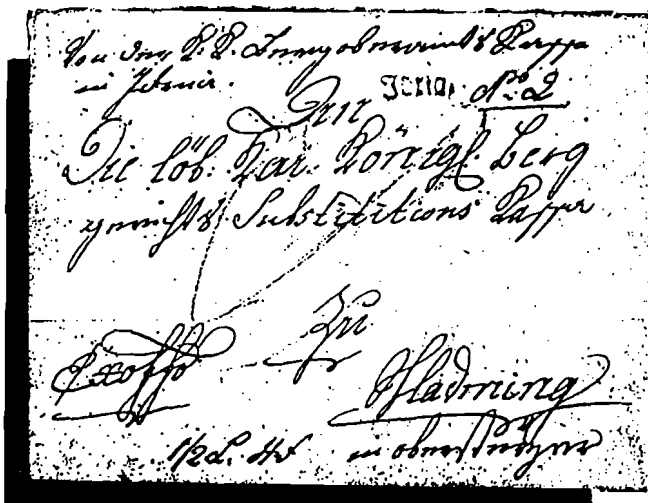 Von der K. K. Bergoberamts Kassa
in Idria.
IDRIA. No. 2
An
Die löb. Kai. Königl. Berg
gerichts Substitutions Kassa
Zu
Exoffo
Schladming
1/2 L. in obersteyer